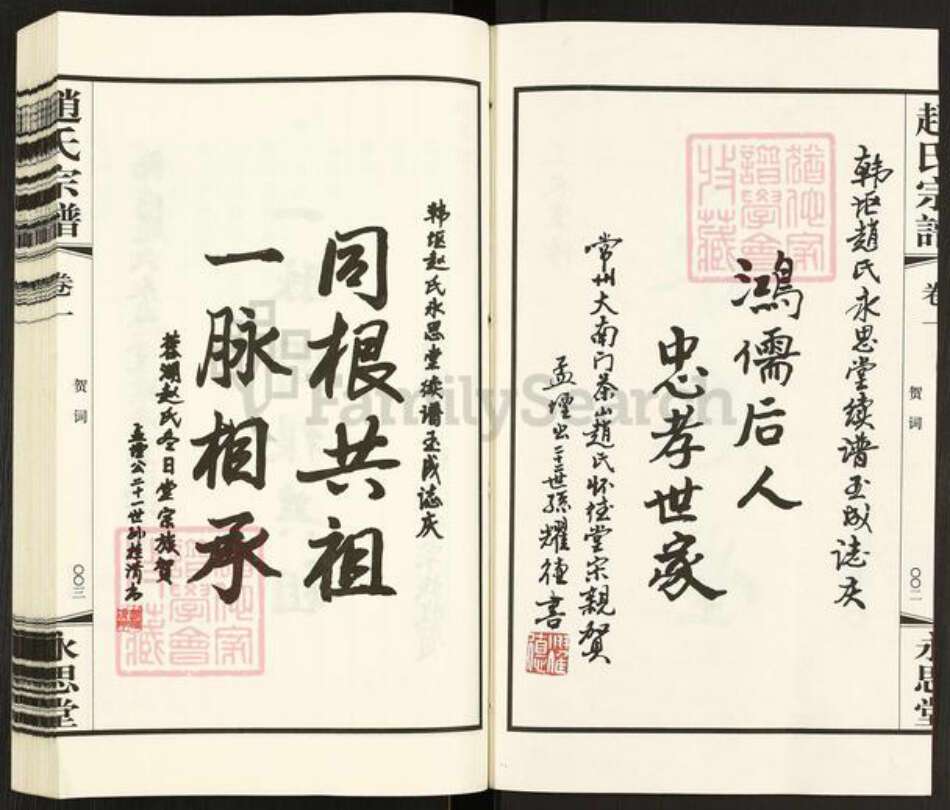 趙氏宗譜
卷一
贺词
〇〇二
永思堂
韩垊趙氏永思堂续谱玉成誌庆
鴻儒后人
忠孝世家
常州大南门茶山趙氏怀德堂宗親贺
孟堙公二十世孫耀德書
韩垊赵氏永思堂续谱玉成誌庆
同根共祖
一脉相承
蓉湖赵氏冬日堂宗族贺
孟堙公二十一世孙桂清书
趙氏宗譜
卷一
贺词
〇〇三
永思堂
FamilySearch